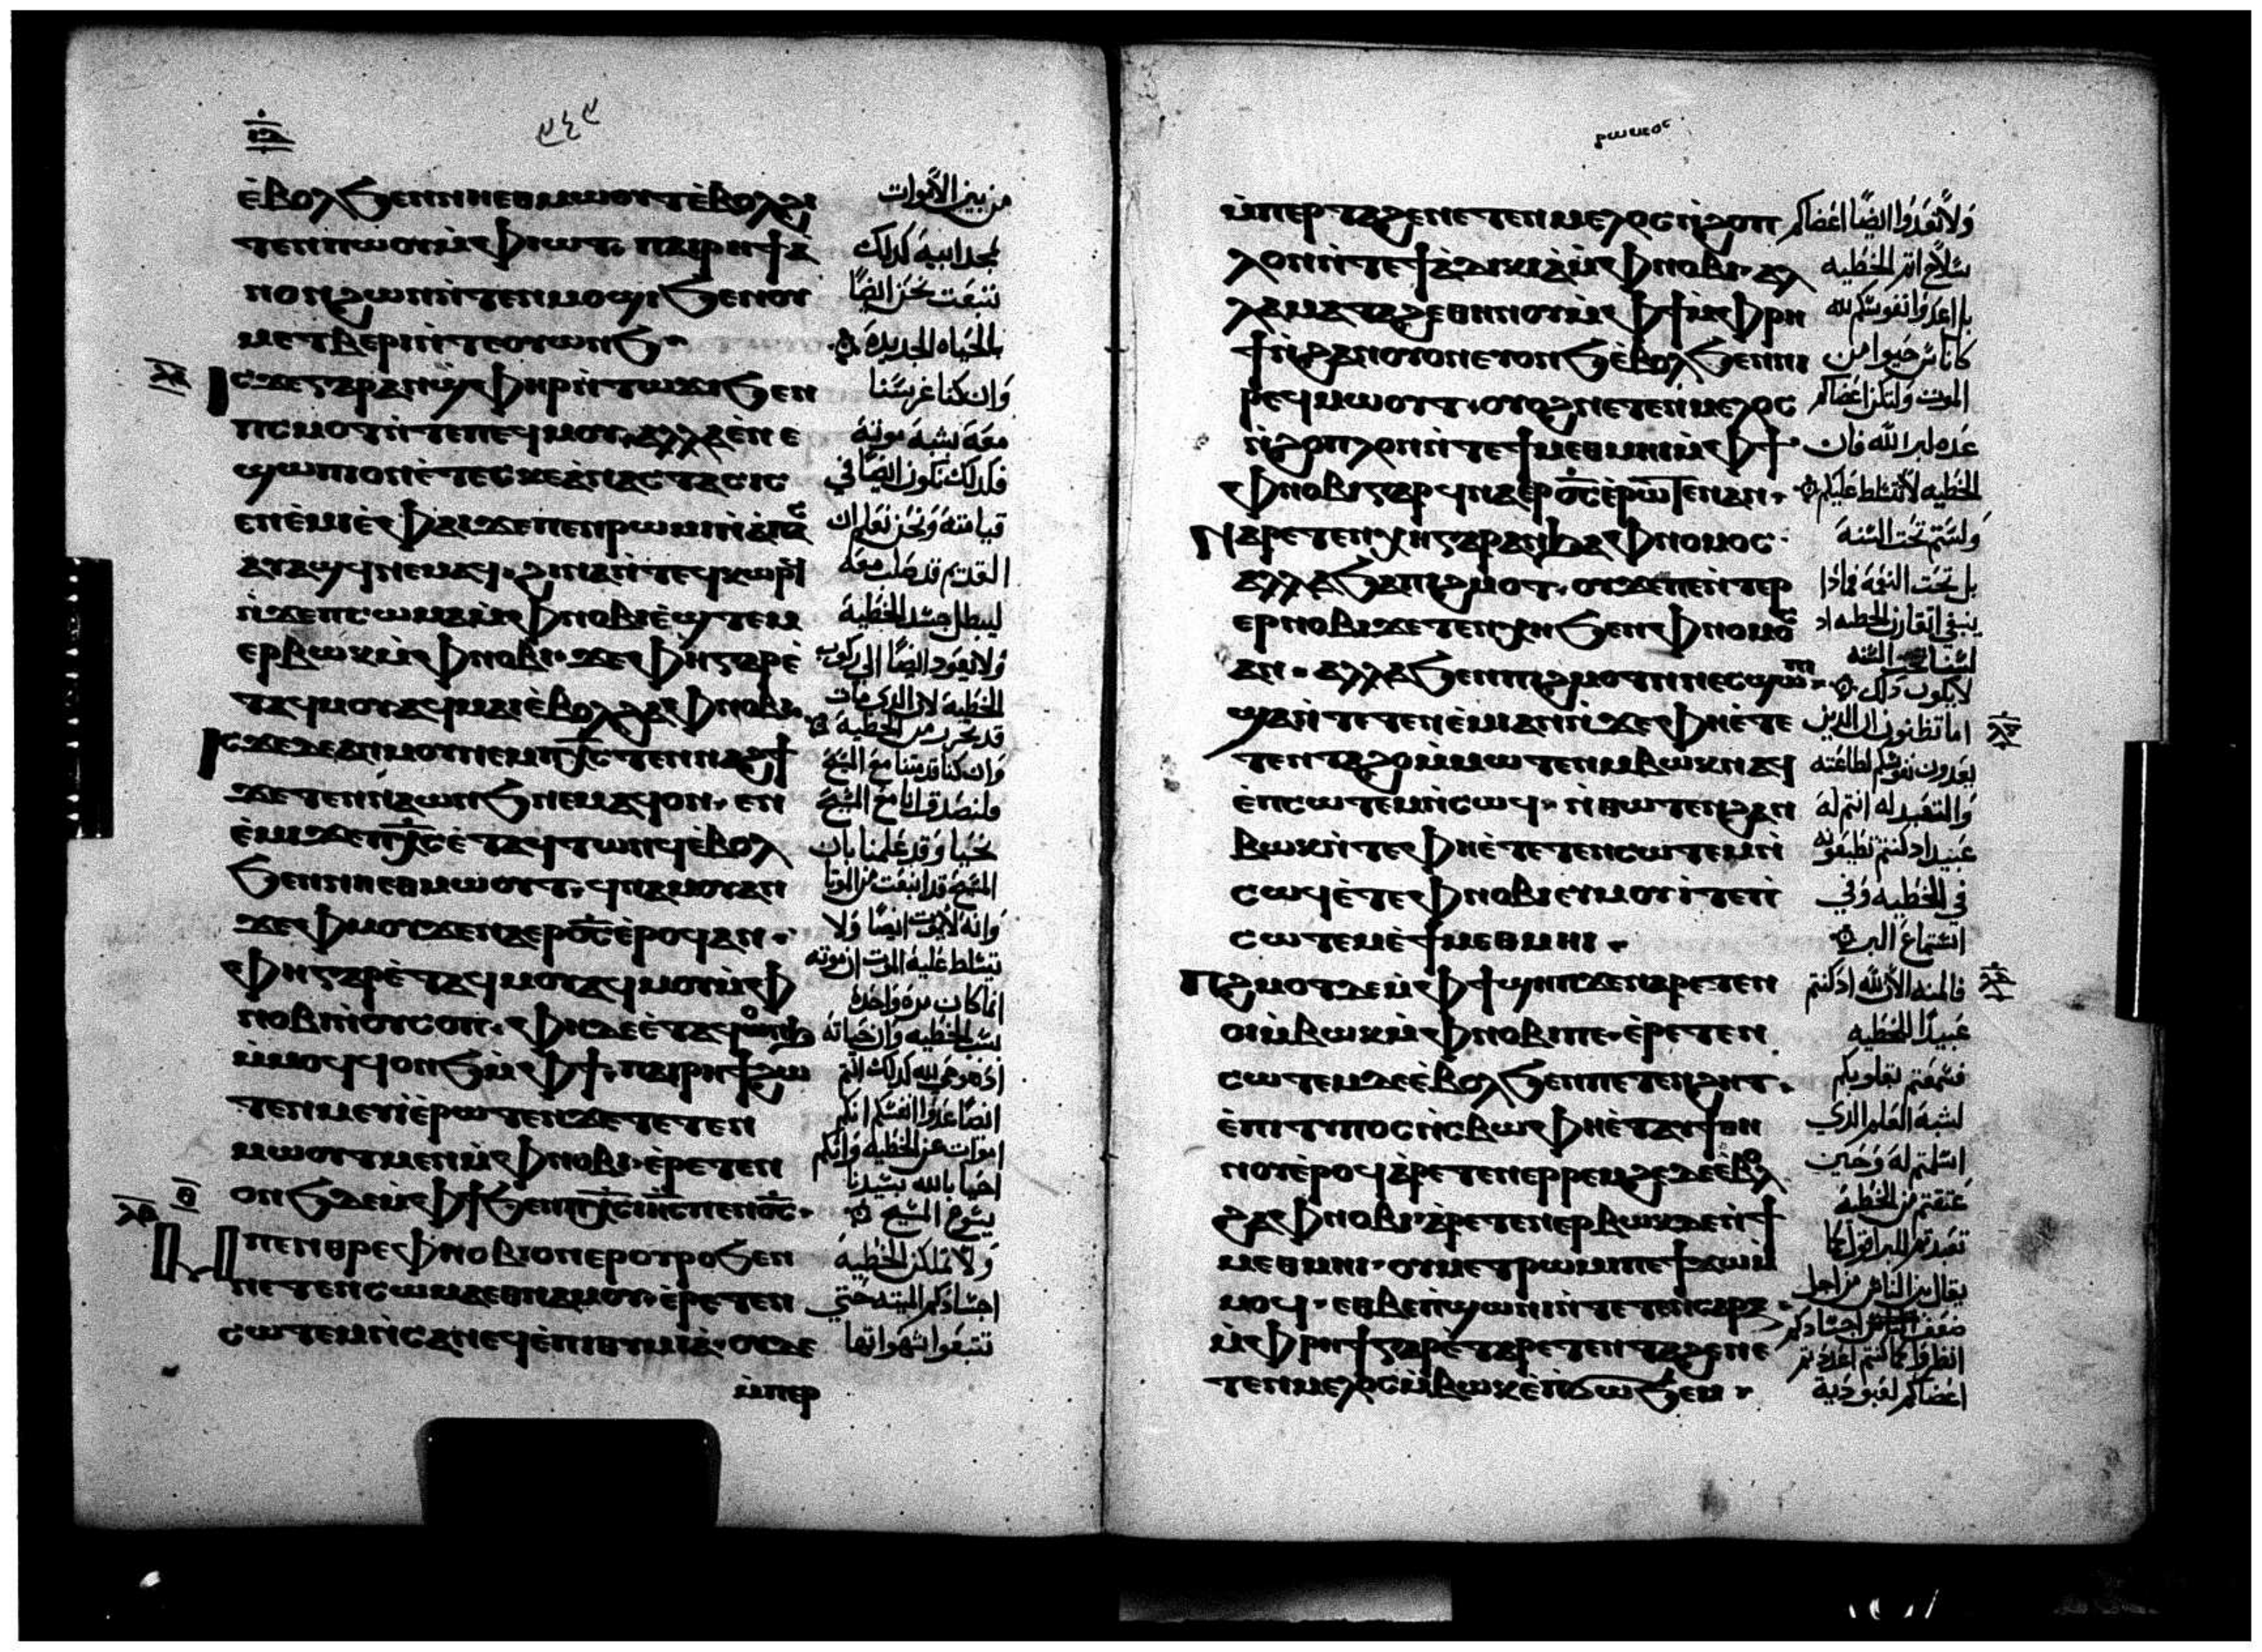 ⲉ̀ⲃⲟⲗϧⲉⲛⲛⲏⲉⲑⲙⲱⲟⲩⲧⲉ̀ⲃⲟⲗϩⲓ
ⲧⲉⲛⲡⲱⲟⲩⲙ̀ⲫⲓⲱⲧ· ⲡⲁⲓⲣⲏϯⲁ̀
ⲛⲟⲛϩⲱⲛⲛ̀ⲧⲉⲛⲙⲟϣⲓϧⲉⲛⲟⲩ
ⲙⲉⲧⲃⲉⲣⲓⲛ̀ⲧⲉⲟⲩⲱⲛϧ·
ⲓⲥϫⲉⲅⲁⲣⲁⲛϣ̀ⲫⲏⲣⲛ̀ⲧⲱϫⲓϧⲉⲛ
ⲡⲥⲙⲟⲧⲛ̀ⲧⲉⲡⲉϥⲙⲟⲩ· ⲁⲗⲗⲁⲉ̀ⲛⲉ
ϣⲱⲡⲟⲛⲛ̀ⲧⲉϥⲕⲉⲁ̀ⲛⲁⲥⲧⲁⲥⲓⲥ
ⲉⲛⲉ̀ⲙⲓⲉ̀ⲫⲁⲓϫⲉⲡⲉⲛⲣⲱⲙⲓⲛ̀ⲁ̀ⲡⲁⲥ
ⲁⲩⲁϣϥⲛⲉⲙⲁϥ· ϩⲓⲛⲁⲛ̀ⲧⲉϥⲕⲱⲣϥ
ⲛ̀ϫⲉⲡⲥⲱⲙⲁⲙ̀ⲫⲛⲟⲃⲓⲉ̀ϣⲧⲉⲙ
ⲉⲣⲃⲱⲕⲙ̀ⲫⲛⲟⲃⲓ· ϫⲉⲫⲏⲅⲁⲣⲉ̀
ⲧⲁϥⲙⲟⲩⲁϥⲙⲁⲓⲉ̀ⲃⲟⲗϩⲁⲫⲛⲟⲃⲓ·
ⲓⲥϫⲉⲇⲉⲁⲛⲙⲟⲩⲛⲉⲙⲡⲭ̅ⲥ̅ⲧⲉⲛⲛⲁϩϯ
ϫⲉⲧⲉⲛⲛⲁⲱⲛϧⲛⲉⲙⲁϥⲟⲛ· ⲉⲛ
ⲉ̀ⲙⲓϫⲉⲡⲭ̅ⲥ̅ⲉ̀ⲧⲁϥⲧⲱⲛϥⲉ̀ⲃⲟⲗ
ϧⲉⲛⲛⲏⲉⲑⲙⲱⲟⲩⲧ· ϥⲛⲁⲙⲟⲩⲁⲛ
ϫⲉⲫⲙⲟⲩϫⲉⲛⲁⲉⲣⲟ̅ⲥ̅ⲉ̀ⲣⲟϥⲁⲛ·
ⲫⲏⲅⲁⲣⲉ̀ⲧⲁϥⲙⲟⲩⲁϥⲙⲟⲩⲙ̀ⲫ
ⲛⲟⲃⲓⲛ̀ⲟⲩⲥⲟⲡ· ⲫⲏⲇⲉⲉ̀ⲧⲁϥⲱⲛϧ
ⲙ̀ⲙⲟϥϥⲟⲛϧⲙ̀ⲫϯ· ⲡⲁⲓⲣⲏϯϩⲱ
ⲧⲉⲛⲙⲉⲩⲓⲉ̀ⲣⲱⲧⲉⲛϫⲉⲧⲉⲧⲉⲛ
ⲙⲱⲟⲩⲧⲙⲉⲛⲙ̀ⲫⲛⲟⲃⲓ· ⲉ̀ⲣⲉⲧⲉⲛ
ⲟⲛϧⲇⲉⲙ̀ⲫϯϧⲉⲛⲡⲭ̅ⲥ̅ⲓⲏ̅ⲥ̅ⲡⲉⲛⲟ̅ⲥ̅·
ⲙⲡⲉⲛⲑⲣⲉⲫⲛⲟⲃⲓⲟⲛⲉⲣⲟⲩⲣⲟϧⲉⲛ
ⲡⲉⲧⲉⲛⲥⲱⲙⲁⲉⲑⲛⲁⲙⲟⲩ· ⲉ̀ⲣⲉⲧⲉⲛ
ⲥⲱⲧⲉⲙⲛ̀ⲥⲁⲛⲉϥⲉ̀ⲡⲓⲑⲩⲙⲓⲁ̀· ⲟⲩⲇⲉ
ⲙ̀ⲡⲉⲣ
من بين الاموات
بمجد ابيه كذلك
ننبعث نحن ايضًا
بالحياه الجديده
وان كنا غرسنا
معه بشبه موته
فكذلك نكون ايضًا في
قيامته ونحن نعلم ان
القديم قد صلب معه
ليبطل جسد الخطية
الخطية لان الذي مات
قد تحرر من الخطية
وان كنا قد متنا مع المسيح
المسيح قد انبعث من الموتا
وانه لا يموت ايضًا ولا
يتسلط عليه الموت
انما كان مره واحده
اموات عن الخطيه وانكم
احيا بالله بسيدنا
يسوع المسيح
ولا تملكن الخطية
اجسادكم الميته حتي
تتبعوا شهواتها
ⲣⲱⲙⲉⲟⲥ
ⲙ̀ⲡⲉⲣⲧⲁϩⲉⲛⲉⲧⲉⲛⲙⲉⲗⲟⲥⲛ̀ϩⲟⲡ
ⲗⲟⲛⲛ̀ⲧⲉϯⲁ̀ⲇⲓⲕⲓⲁ̀ⲙ̀ⲫⲛⲟⲃⲓ· ⲁⲗ
ⲗⲁⲙⲁⲧⲁϩⲉⲑⲏⲛⲟⲩⲙ̀ⲫϯⲙ̀ⲫⲣⲏ
ϯⲛ̀ϩⲁⲛⲟⲩⲟⲛⲉⲩⲟⲛϧⲉ̀ⲃⲟⲗϧⲉⲛⲛⲓ
ⲣⲉϥⲙⲱⲟⲩⲧ· ⲟⲩⲟϩⲛⲉⲧⲉⲛⲙⲉⲗⲟⲥ
ⲛ̀ϩⲟⲡⲗⲟⲛⲛ̀ⲧⲉϯⲙⲉⲑⲙⲏⲓⲙ̀ⲫϯ·
ⲫⲛⲟⲃⲓⲅⲁⲣϥⲛⲁⲉⲣⲟ̅ⲥ̅ⲉ̀ⲣⲱⲧⲉⲛⲁⲛ·
ⲛⲁⲣⲉⲧⲉⲛⲭⲏⲅⲁⲣⲁⲛϧⲁⲫⲛⲟⲙⲟⲥ·
ⲁⲗⲗⲁϧⲁⲡⲓϩⲙⲟⲧ· ⲟⲩϫⲉⲡⲉⲛ̀ⲧⲉⲣ
ⲉⲣⲛⲟⲃⲓϫⲉⲧⲉⲛⲭⲏϧⲉⲛⲫⲛⲟⲙⲟⲥ
ⲁⲛ· ⲁⲗⲗⲁϧⲉⲛⲡⲓϩⲙⲟⲧⲛⲛⲉⲥϣⲱⲡ·
ϣⲁⲛ̀ⲧⲉⲧⲉⲛⲉ̀ⲙⲓⲁⲛⲛ̀ϫⲉⲫⲏⲉ̀ⲧⲉ
ⲧⲉⲛⲧⲁϩⲟⲙ̀ⲙⲱⲧⲉⲛⲙⲃⲱⲕⲛⲁϥ
ⲉ̀ⲡⲥⲱⲧⲉⲙⲛ̀ⲥⲱϥ· ⲛ̀ⲑⲱⲧⲉⲛϩⲁⲛ
ⲃⲱⲕⲛ̀ⲧⲉⲫⲏⲉ̀ⲧⲉⲧⲉⲛⲥⲱⲧⲉⲙⲛ̀
ⲥⲱϥⲉ̀ⲧⲉⲫⲛⲟⲃⲓⲉⲩⲙⲟⲩⲓ̀ⲧⲉⲡⲓ
ⲥⲱⲧⲉⲙⲉ̀ϯⲙⲉⲑⲙⲏⲓ·
ⲡϩⲙⲟⲧⲇⲉⲙ̀ⲫϯϣⲏⲡϫⲉⲛⲁⲣⲉⲧⲉⲛ
ⲟⲓⲙ̀ⲃⲱⲕⲙ̀ⲫⲛⲟⲃⲓⲡⲉ· ⲉ̀ⲣⲉⲧⲉⲛ
ⲥⲱⲧⲉⲙⲇⲉⲉ̀ⲃⲟⲗϧⲉⲛⲡⲉⲧⲉⲛϩⲏⲧ·
ⲉ̀ⲡⲓⲧⲩⲡⲟⲥⲛ̀ⲥⲃⲱⲫⲏⲉ̀ⲧⲁⲩϯⲑⲏ
ⲛⲟⲩⲉ̀ⲣⲟϥⲁ̀ⲣⲉⲧⲉⲛⲉⲣⲣⲉⲙϩⲉⲇⲉⲉ̀ⲃⲟⲗ
ϩⲁⲫⲛⲟⲃⲓ· ⲁ̀ⲣⲉⲧⲉⲛⲉⲣⲃⲱⲕⲇⲉⲛ̀ϯ
ⲙⲉⲑⲙⲏⲓ· ⲟⲩⲙⲉⲧⲣⲱⲙⲓⲡⲉϯϫⲱⲙ̀
ⲙⲟϥ· ⲉⲑⲃⲉⲡϣⲱⲛⲓⲛ̀ⲧⲉⲧⲉⲛⲥⲁⲣⲝ·
ⲙ̀ⲫⲣⲏϯⲅⲁⲣⲉ̀ⲧⲁⲣⲉⲧⲉⲛⲧⲁϩⲉⲛⲉ
ⲧⲉⲛⲙⲉⲗⲟⲥⲙ̀ⲃⲱⲕⲉ̀ⲡϭⲱϧⲉⲙ·
ولا تعدوا ايضًا اعضاكم
سلاح اثم الخطيه
بل اعدوا نفوسكم لله
كاناس حيوا من
الموت ولتكن اعضاكم
عده لبر الله فان
الخطيه لا تتسلط عليكم
ولستم تحت السنه
بل تحت النعمه فماذا
لا يكون ذلك
اما تظنون ان الذين
تعدون نفوسكم لطاعته
والتعبد له انتم له
عبيد اذ كنتم تطيعونه
في الخطيه وفي
استماع البر
فالمنه الان لله اذ كنتم
عبيدًا للخطيه
فسمعتم بقلوبكم
لشبه العلم الذي
اسلمتم له وحين
عتقتم من الخطية
اعضاكم لعبودية